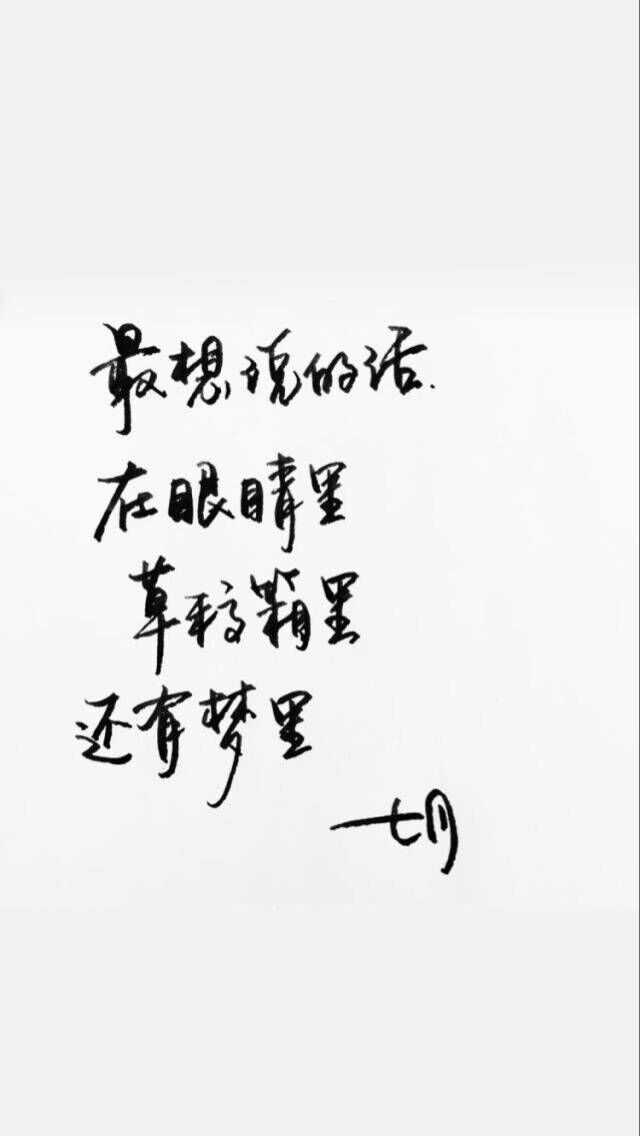 最想说的话.
在眼睛里
草稿箱里
还有梦里
一七月